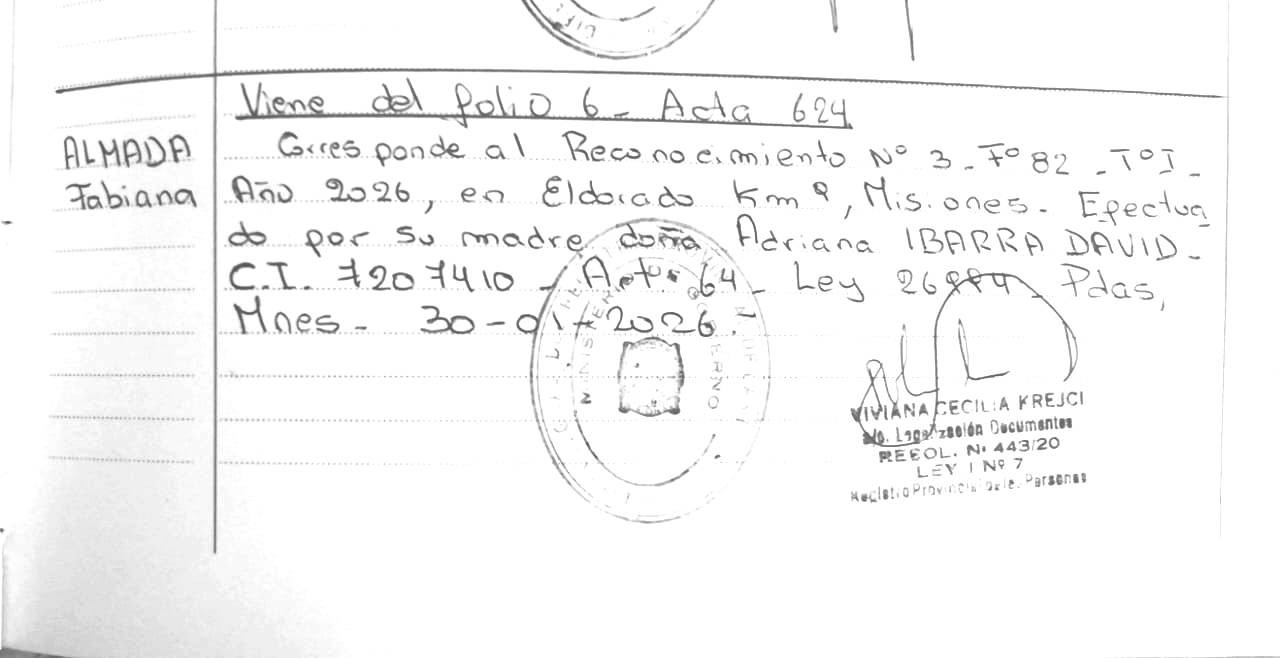 Viene del folio 6 - Acta 624
ALMADA
Fabiana
Corresponde al Reconocimiento Nº 3 - Fº 82 - TºI -
Año 2026, en Eldorado Km 9, Misiones - Efectua
do por su madre doña Adriana IBARRA DAVID -
C.I. 7207410 - Artº 64 - Ley 26994 - Pdas,
Mnes - 30-01-2026.
VIVIANA CECILIA KREJCI
Legalización Documentos
RESOL. Nº 443/20
LEY I Nº 7
Registro Provincial de las Personas